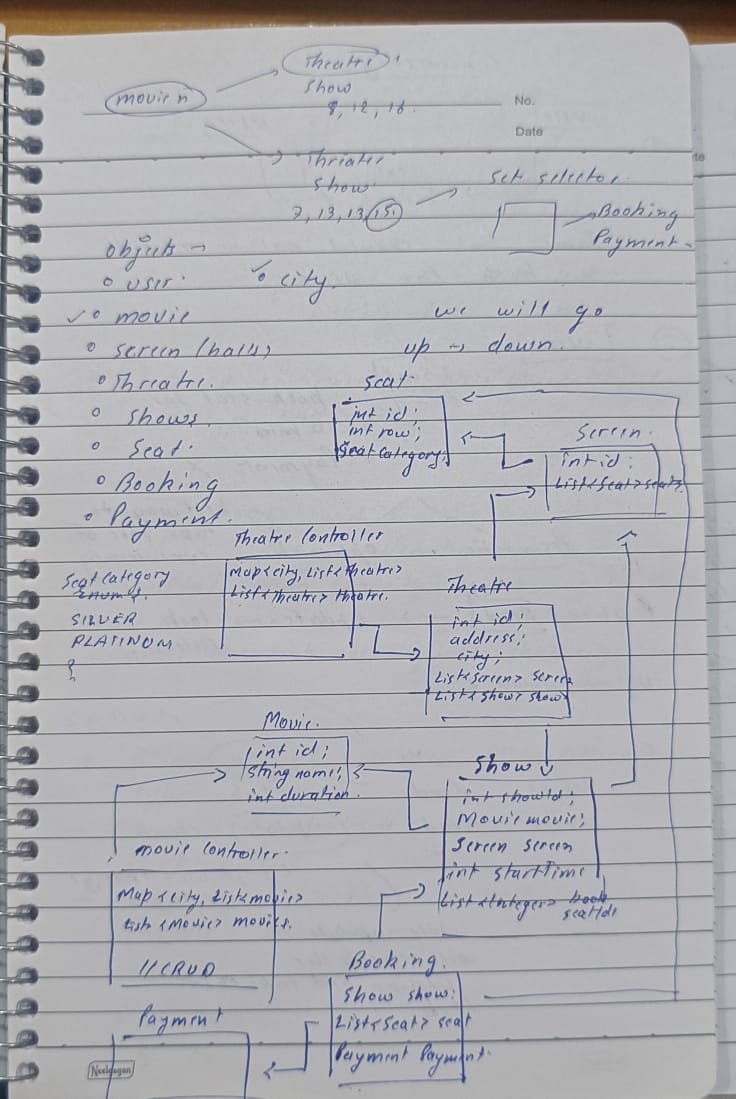 Theatre
Show
8, 12, 16
movie n
No.
Date
Threatre
Show
7, 13, 13, 15
Set selector
Booking
Payment
Objects
user
city
movie
we will go
up → down
screen (halls)
Threatre
Shows
Seat
Booking
Payment
Seat
int id;
int row;
Seat Category;
Screen
int id;
List<Seat> seats
Theatre Controller
Map<city, List<theatre>
List<theatre> theatre.
Seat Category
enum {
SILVER
PLATINUM
}
Theatre
int id;
address;
city;
List<screen> screen
List<show> show
Movie.
int id;
string name;
int duration
Show
int showId;
Movie movie;
Screen screen
int startTime
List<Integer> book
seatId
movie controller
Map<city, List<movie>
List<Movie> movies.
//CRUD
Booking.
Show show;
List<Seat> seat
Payment Payment
Payment
Neelgagan